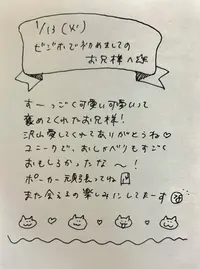 1/13(火)
ビジホで初めましての
お兄様へ
すーっごく可愛い可愛いって
褒めてくれたお兄様!
沢山愛してくれてありがとうね♡
ユニークで、おしゃべりもすごく
おもしろかったな〜!
ポーカー頑張ってね
また会えるの楽しみにしてまーす